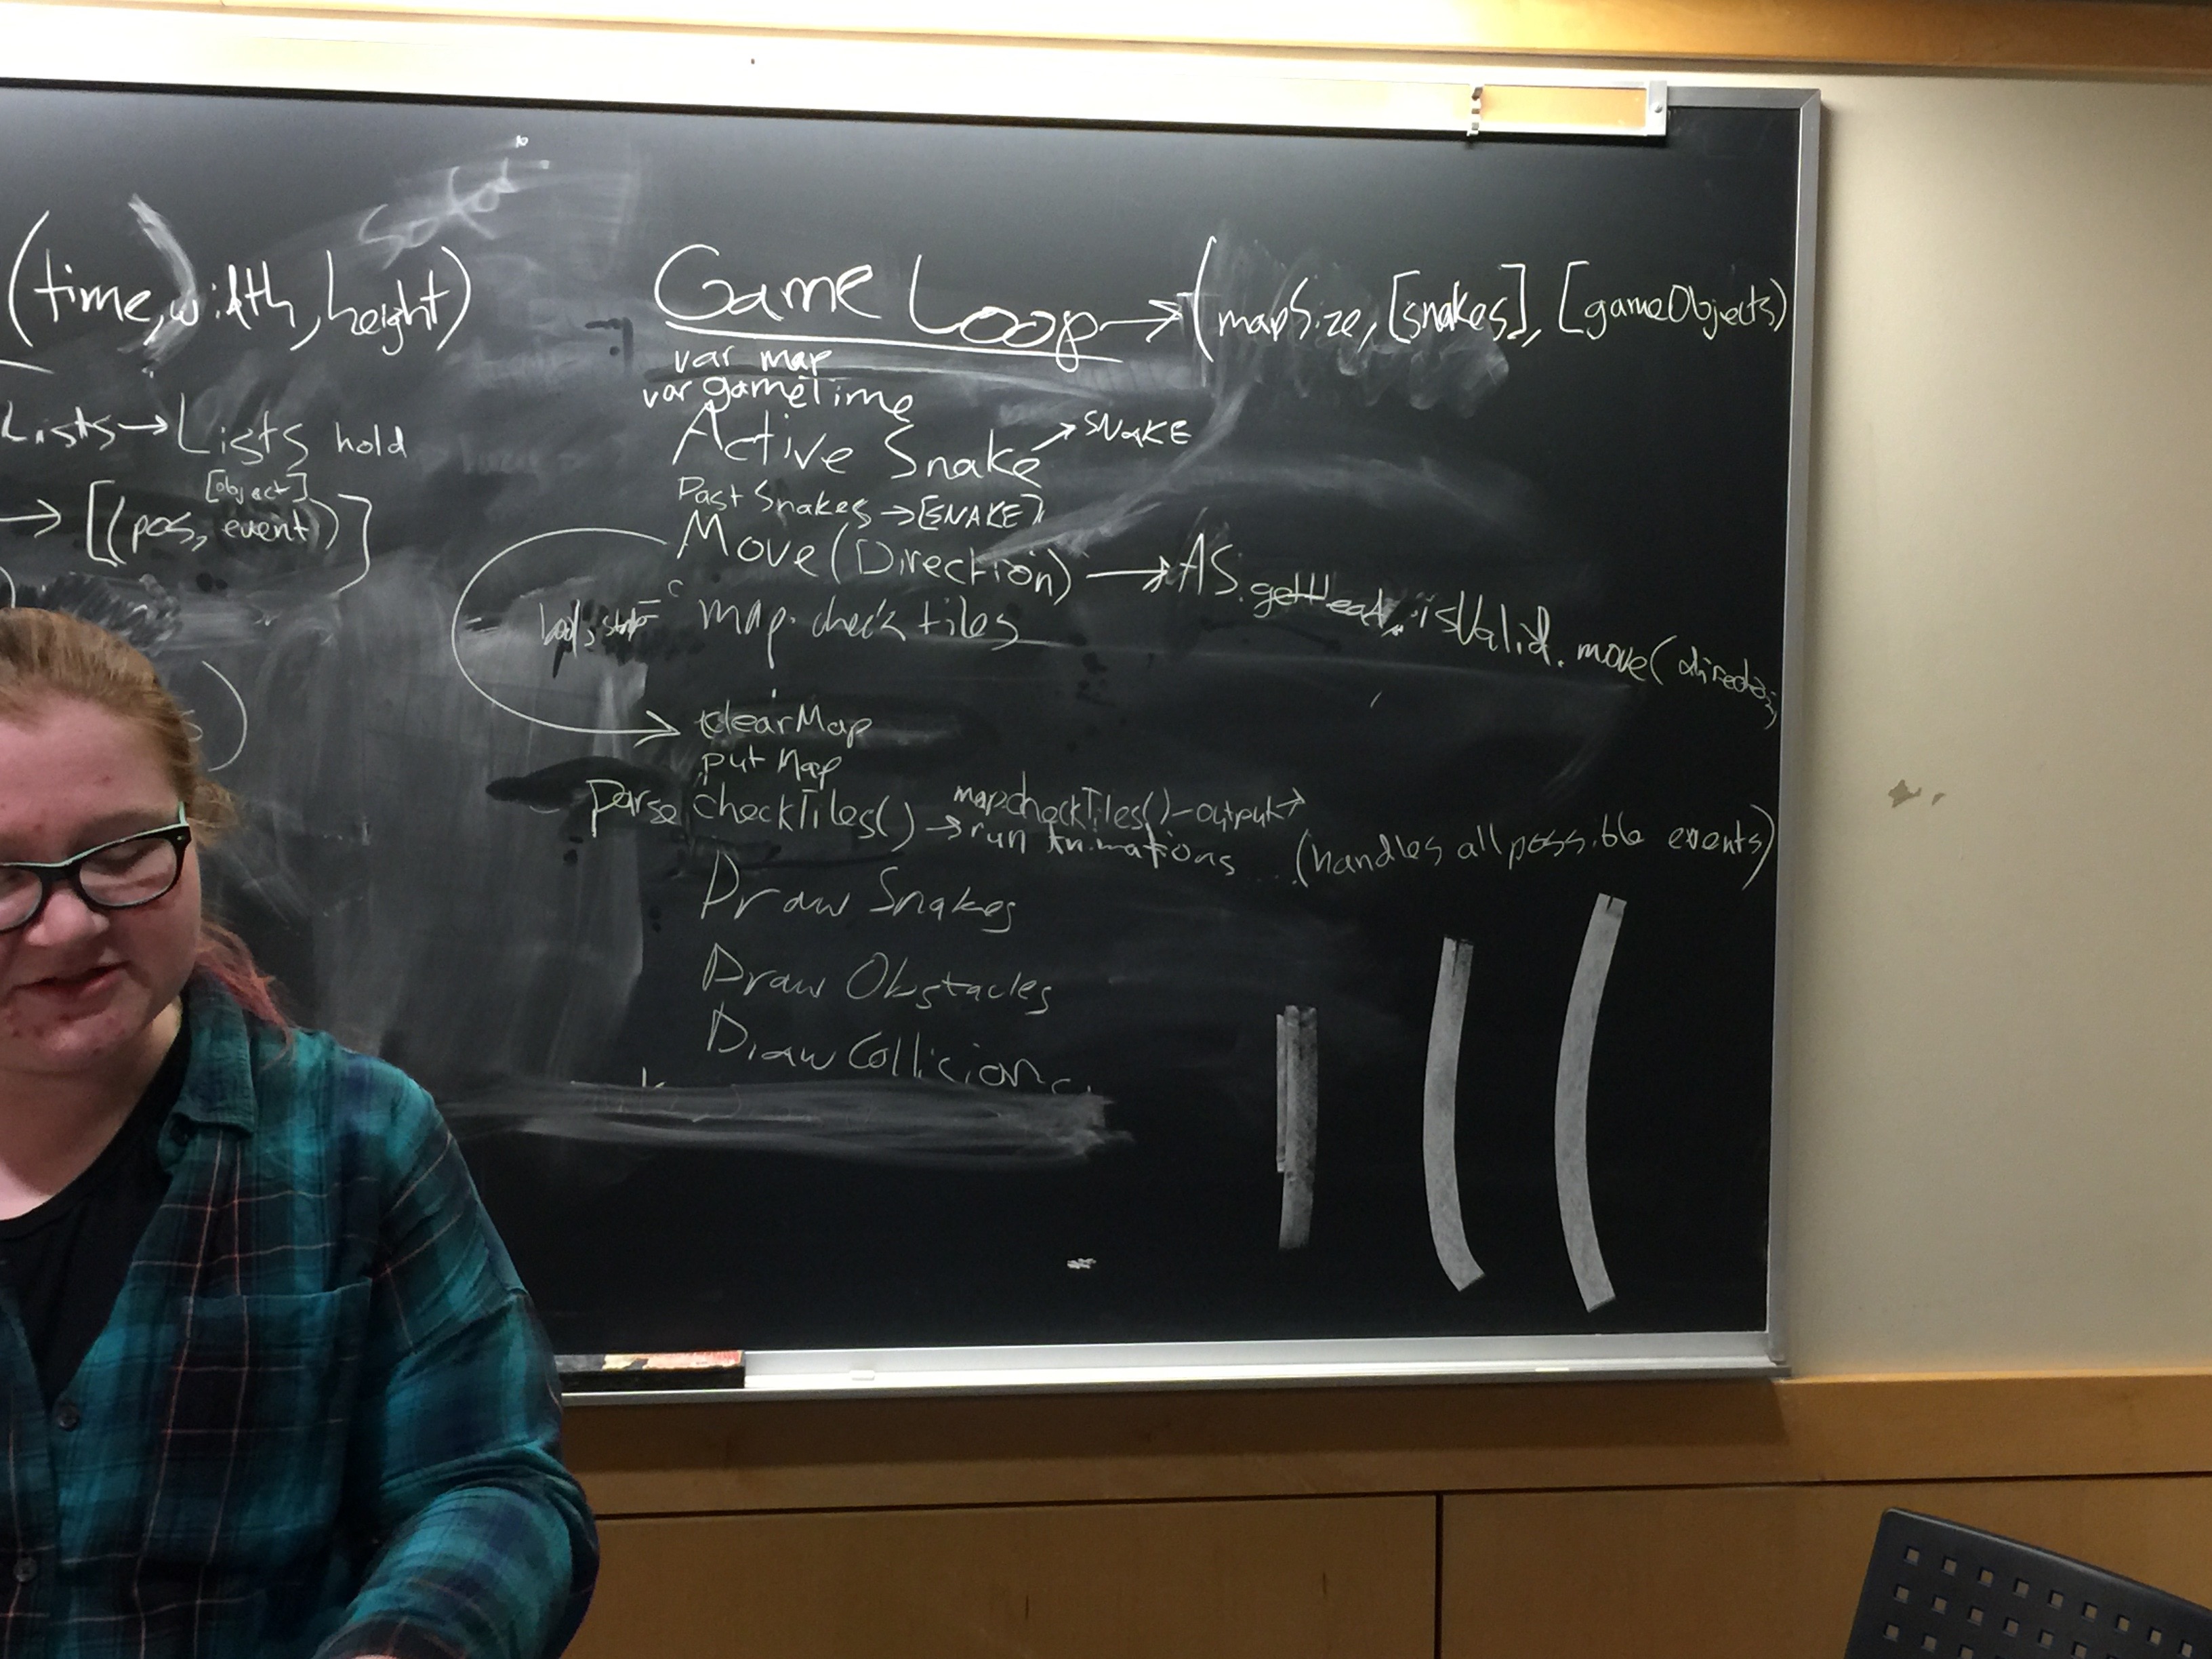 (time, width, height)
Lists → Lists hold
[object]
→ [(pos, event)]
Game Loop → (mapSize, [snakes], [gameObjects)
var map
var gameTime
Active Snake → SNAKE
Past Snakes → [SNAKE]
Move (Direction) → AS.getHead.isValid.move(
map.check tiles
clearMap
put Map
Parse checkTiles() → map.checkTiles()-output→
run Animations (handles all possible events)
Draw Snakes
Draw Obstacles
Draw Collicions